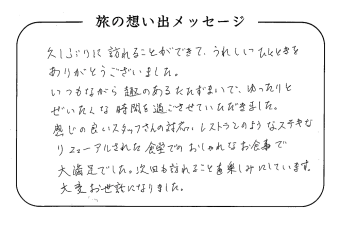 旅の想い出メッセージ
久しぶりに訪れることができて、うれしいひとときを
ありがとうございました。
いつもながら趣のあるたたずまいで、ゆったりと
ぜいたくな時間を過ごさせていただきました。
感じの良いスタッフさんの対応、レストランのようなステキな
リニューアルされた食堂でのおしゃれなお食事で
大満足でした。次回も訪れることを楽しみにしています。
大変お世話になりました。